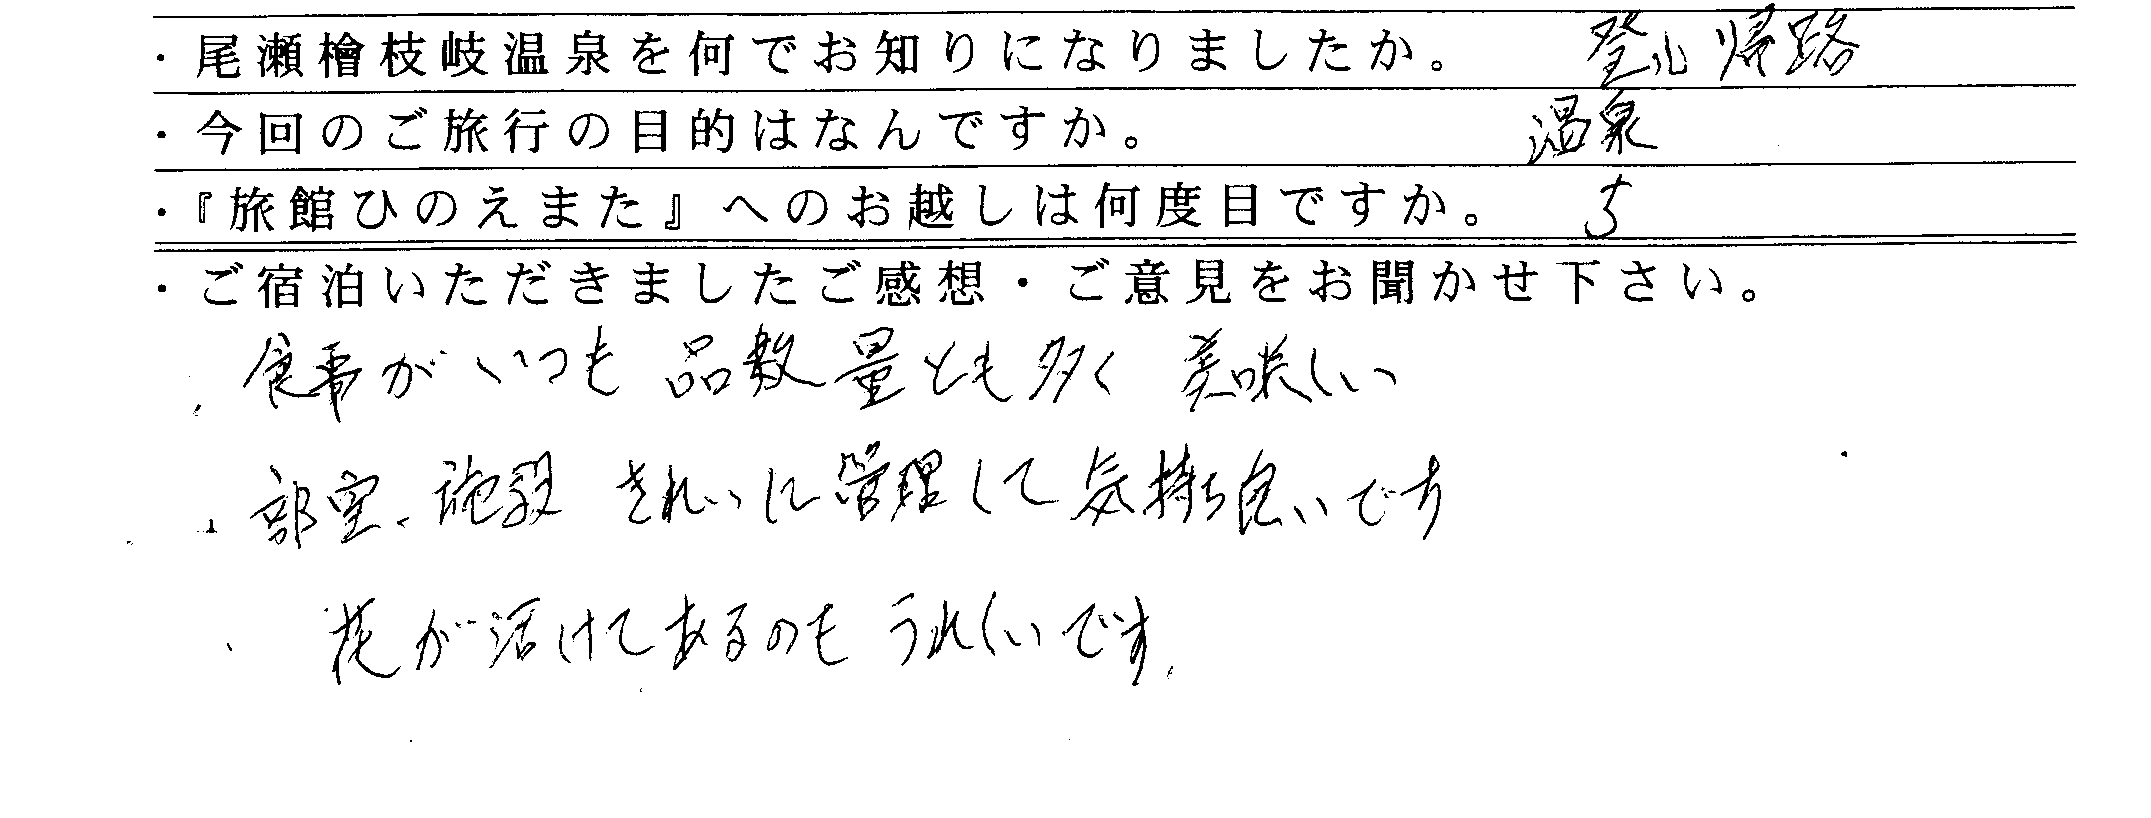 ・尾瀬檜枝岐温泉を何でお知りになりましたか。 登山帰路
・今回のご旅行の目的はなんですか。 温泉
・『旅館ひのえまた』へのお越しは何度目ですか。 5
・ご宿泊いただきましたご感想・ご意見をお聞かせ下さい。
食事がいつも品数量とも多く美味しい
部室、施設 きれいに管理して気持ち良いです
花が活けてあるのもうれしいです.